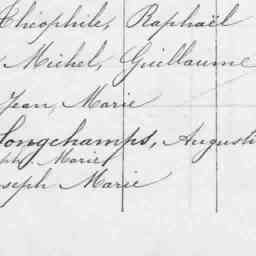 Théophile, Raphaël
Michel, Guillaume
Jean, Marie
Longchamps, Augusti
ph. Marie
oseph Marie